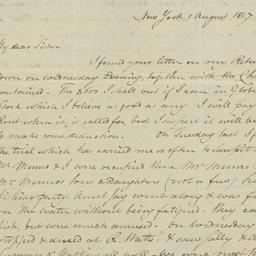 New York 1 August 1817
My dear Sister
I found your letter on my Retu
own on Wednesday Evening, together with the Che
contained. The $600 I shall out if I can in Globe
Stock which I believe as good as any. I will pay
Rent when it is called for but I
to make some deduction. On Tuesday last I f
the trial which has carried me so often to
Mr Munro & I were occupied thru Mrs Munro
Mr Munros Son & daughter (not a few) h
fishing party. Aunt Jay went along & was f
on the water without being fatigued. They cau
fish but were much amused. On Wednesday
stopped & dined at R. Watts: I saw Sally & a
well. We were most